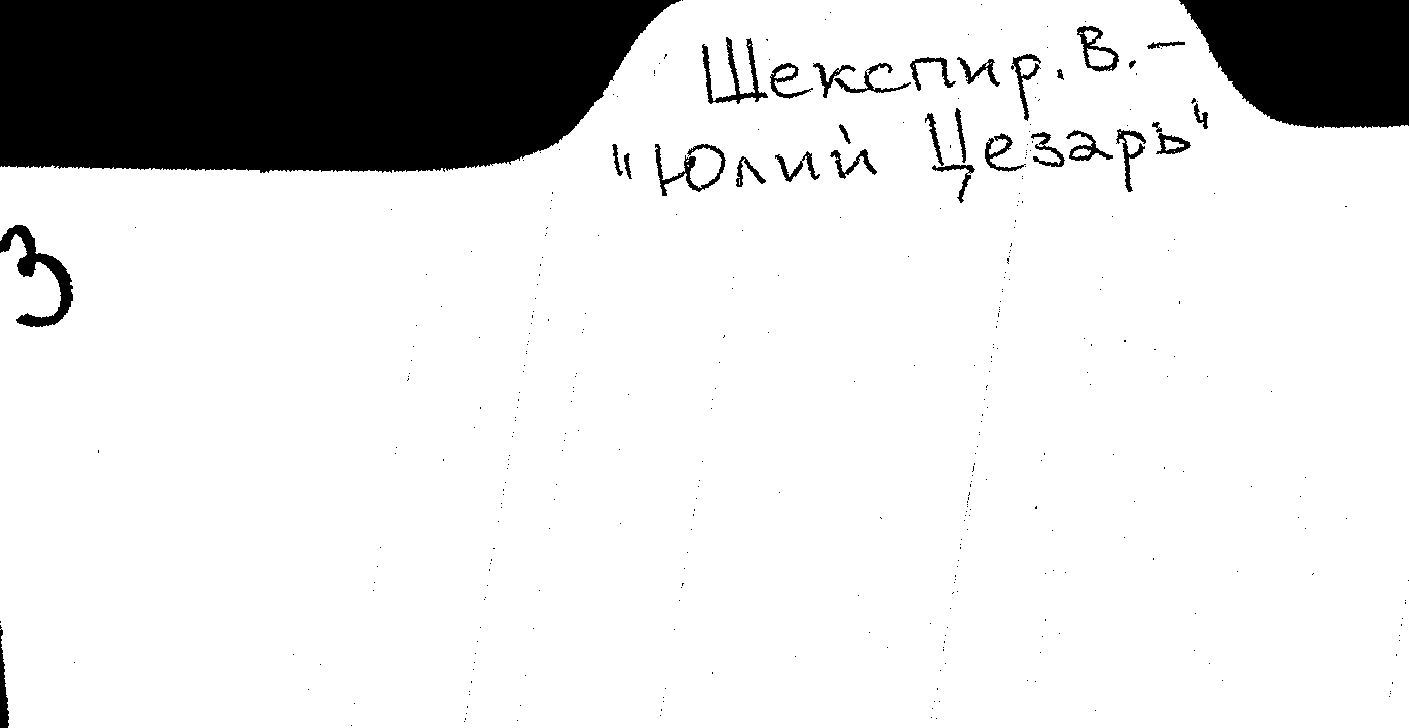 Шекспир. В. –
"Юлий Цезарь"
3